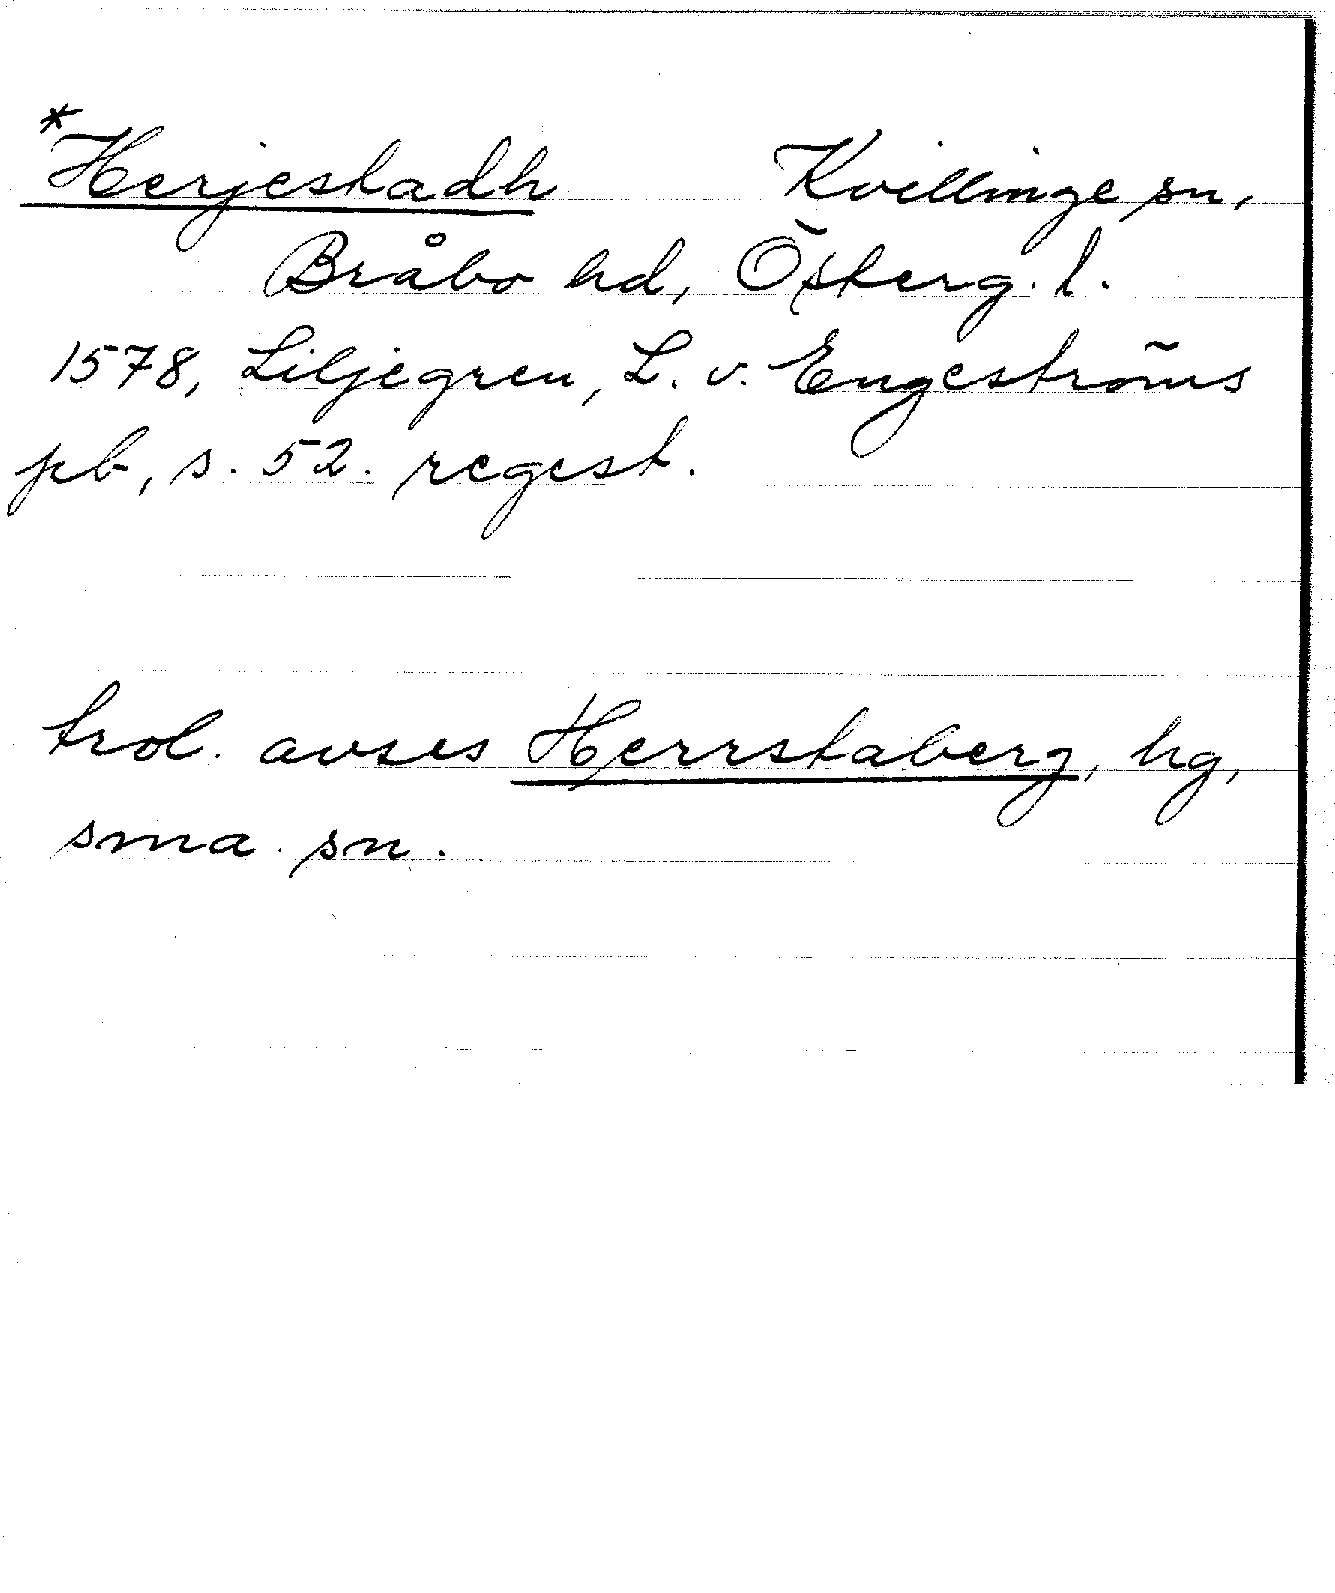 *Herjestadh Kvillinge sn,
Bråbo hd, Österg. l.
1578, Liljegren, L. v. Engeströms
pb, s. 52. regest.
trol. avses Herrstaberg, hg,
sma. sn.